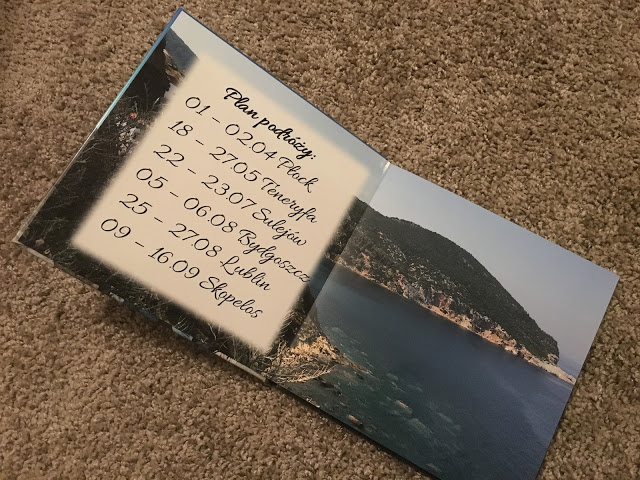 Plan podróży:
01 - 02.04 Płock
18 - 27.05 Teneryfa
22 - 23.07 Sulejów
05 - 06.08 Bydgoszcz
25 - 27.08 Lublin
09 - 16.09 Skopelos